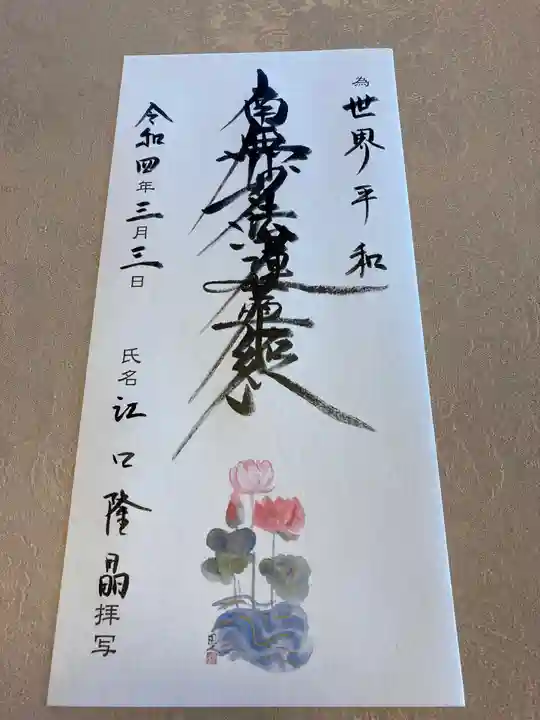 為 世界平和
南無妙法蓮華経
令和四年三月三日
氏名 江口隆晶 拝写